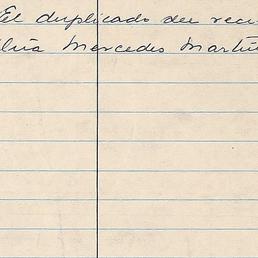 El duplicado del reci
Mercedes Martín